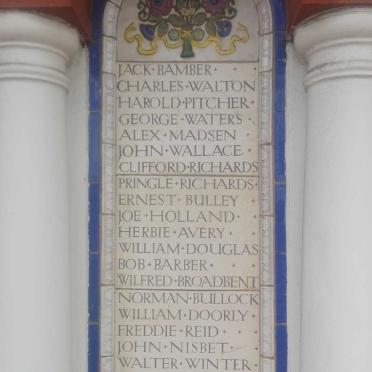 JACK·BAMBER·
CHARLES·WALTON
HAROLD·PITCHER·
GEORGE·WATERS·
ALEX·MADSEN·
JOHN·WALLACE·
CLIFFORD·RICHARDS
PRINGLE·RICHARDS·
ERNEST·BULLEY·
JOE·HOLLAND·
HERBIE·AVERY·
WILLIAM·DOUGLAS
BOB·BARBER·
WILFRED·BROADBENT
NORMAN·BULLOCK
WILLIAM·DOORLY·
FREDDIE·REID·
JOHN·NISBET·
WALTER·WINTER·